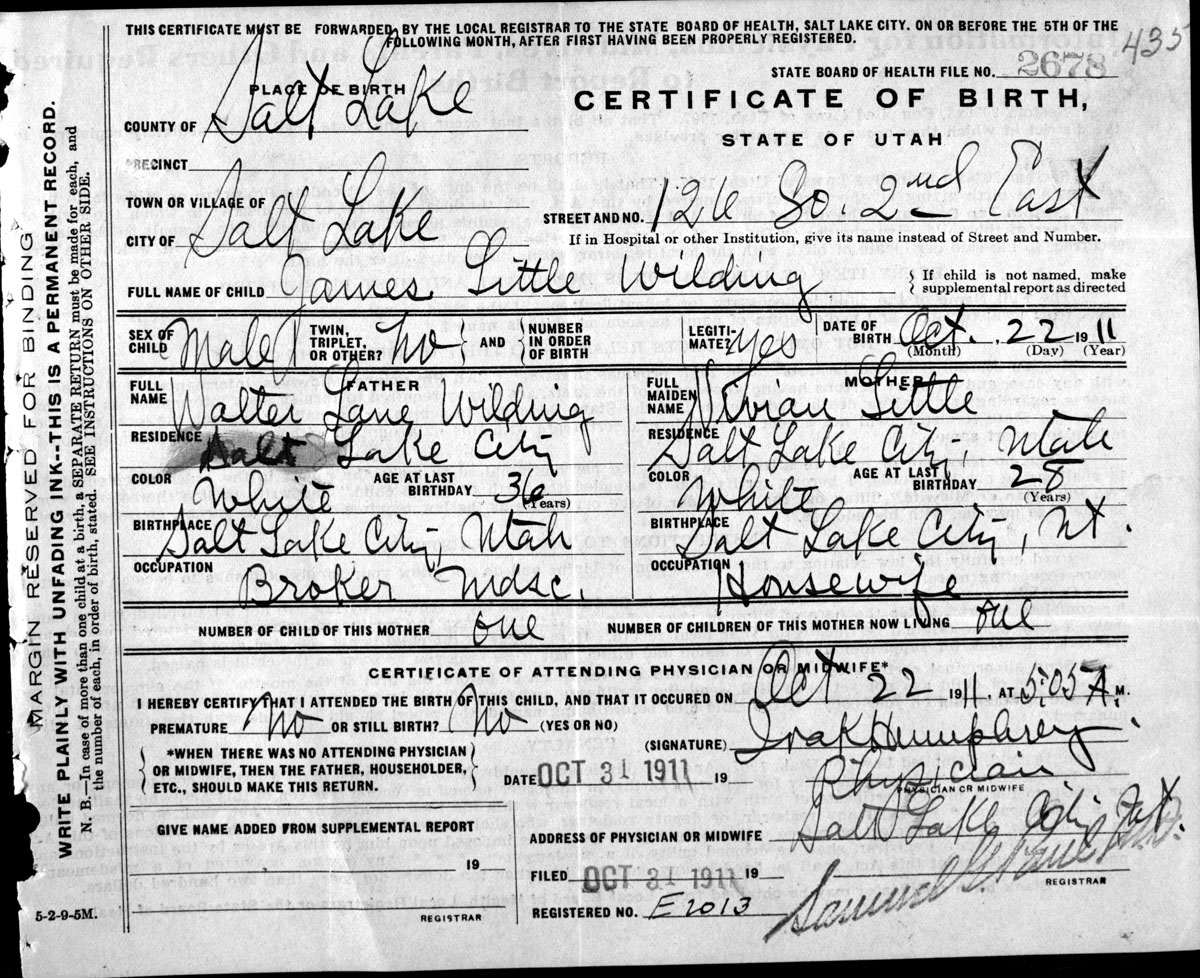 THIS CERTIFICATE MUST BE FORWARDED BY THE LOCAL REGISTRAR TO THE STATE BOARD OF HEALTH, SALT LAKE CITY, ON OR BEFORE THE 5TH OF THE
FOLLOWING MONTH, AFTER FIRST HAVING BEEN PROPERLY REGISTERED.
435
STATE BOARD OF HEALTH FILE NO. 2678
PLACE OF BIRTH
CERTIFICATE OF BIRTH,
COUNTY OF Salt Lake
STATE OF UTAH
PRECINCT
TOWN OR VILLAGE OF
STREET AND NO. 126 So. 2nd East
CITY OF Salt Lake
If in Hospital or other Institution, give its name instead of Street and Number.
FULL NAME OF CHILD James Little Wilding
If child is not named, make
supplemental report as directed
SEX OF CHILD Male
TWIN, TRIPLET, OR OTHER? No
AND
NUMBER IN ORDER OF BIRTH
LEGITIMATE? Yes
DATE OF BIRTH Oct. 22 1911
(Month) (Day) (Year)
FATHER
FULL NAME Walter Lane Wilding
RESIDENCE Salt Lake City
COLOR White
AGE AT LAST BIRTHDAY 36
(Years)
BIRTHPLACE Salt Lake City, Utah
OCCUPATION Broker Mdsc.
MOTHER
FULL MAIDEN NAME Vivian Little
RESIDENCE Salt Lake City, Utah
COLOR White
AGE AT LAST BIRTHDAY 28
(Years)
BIRTHPLACE Salt Lake City, Ut.
OCCUPATION Housewife
NUMBER OF CHILD OF THIS MOTHER one
NUMBER OF CHILDREN OF THIS MOTHER NOW LIVING one
CERTIFICATE OF ATTENDING PHYSICIAN OR MIDWIFE*
I HEREBY CERTIFY THAT I ATTENDED THE BIRTH OF THIS CHILD, AND THAT IT OCCURED ON Oct 22 1911, AT 5:05 A. M.
PREMATURE No OR STILL BIRTH? No (YES OR NO)
(SIGNATURE) Ira K Humphrey.
*WHEN THERE WAS NO ATTENDING PHYSICIAN
OR MIDWIFE, THEN THE FATHER, HOUSEHOLDER,
ETC., SHOULD MAKE THIS RETURN.
DATE OCT 31 1911 19
Physician
PHYSICIAN OR MIDWIFE
GIVE NAME ADDED FROM SUPPLEMENTAL REPORT
ADDRESS OF PHYSICIAN OR MIDWIFE Salt Lake City Ut.
19
FILED OCT 31 1911 19
Samuel
REGISTRAR
REGISTERED NO. E2013
REGISTRAR
5-2-9-5M.
MARGIN RESERVED FOR BINDING
WRITE PLAINLY WITH UNFADING INK--THIS IS A PERMANENT RECORD.
N. B.—In case of more than one child at a birth, a SEPARATE RETURN must be made for each, and
the number of each, in order of birth, stated. SEE INSTRUCTIONS ON OTHER SIDE.